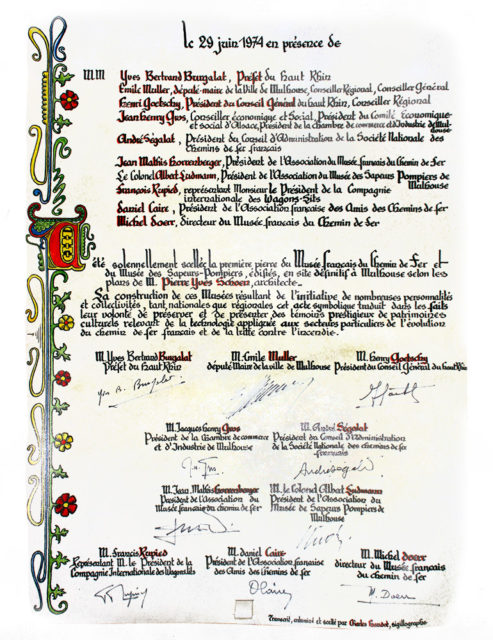 le 29 juin 1974 en présence de
MM Yves Bertrand Burgalat, Préfet du haut Rhin
Emile Muller, député-maire de la Ville de Mulhouse, Conseiller Régional, Conseiller Général
henri Goetschy, Président du Conseil Général du haut Rhin, Conseiller Régional
Jean henry Gros, Conseiller économique et Social, Président du Comité Economique
et social d'Alsace, Président de la Chambre de commerce et d'Industrie de Mulhouse
André Ségalat, Président du Conseil d'Administration de la Société Nationale des
Chemins de fer français
Jean Mathis horrenberger, Président de l'Association du Musée français du Chemin de Fer
Le Colonel Albert Ludmann, Président de l'Association du Musée des Sapeurs Pompiers de
Mulhouse
François Rupied, représentant Monsieur le Président de la Compagnie
internationale des Wagons-lits
daniel Caire, Président de l'Association française des Amis des Chemins de fer
Michel Doerr, Directeur du Musée français du Chemin de Fer
A été solennellement scellée la première pierre du Musée français du Chemin de Fer et
du Musée des Sapeurs-Pompiers, édifiés, en site définitif à Mulhouse selon les
plans de M. Pierre Yves Schoen, architecte.
La construction de ces Musées résultant de l'initiative de nombreuses personnalités
et collectivités, tant nationales que régionales cet acte symbolique traduit dans les faits
leur volonté de préserver et de présenter des témoins prestigieux de patrimoines
culturels relevant de la technologie appliquée aux secteurs particuliers de l'évolution
du chemin de fer français et de la lutte contre l'incendie.
M. Yves Bertrand Burgalat M. Emile Muller M. henry Goetschy
Préfet du haut Rhin député Maire de la ville de Mulhouse Président du Conseil Général du haut Rhin
Yves B. Burgalat
M. Jacques henry Gros M. André Ségalat
Président de la Chambre de commerce Président du Conseil d'Administration
et d'Industrie de Mulhouse de la Société Nationale des chemins de fer
français
André Ségalat
M. Jean Mathis horrenberger M. le Colonel Albert Ludmann
Président de l'Association du Président de l'Association du
Musée français du chemin de fer Musée des Sapeurs Pompiers de
Mulhouse
M. Francis Rupied M. daniel Caire M. Michel doerr
Représentant M. le Président de la Président de l'Association française directeur du Musée français
Compagnie Internationale des Wagons lits des Amis des Chemins de fer du chemin de fer
M. Doerr
Charles haudot, sigillographe